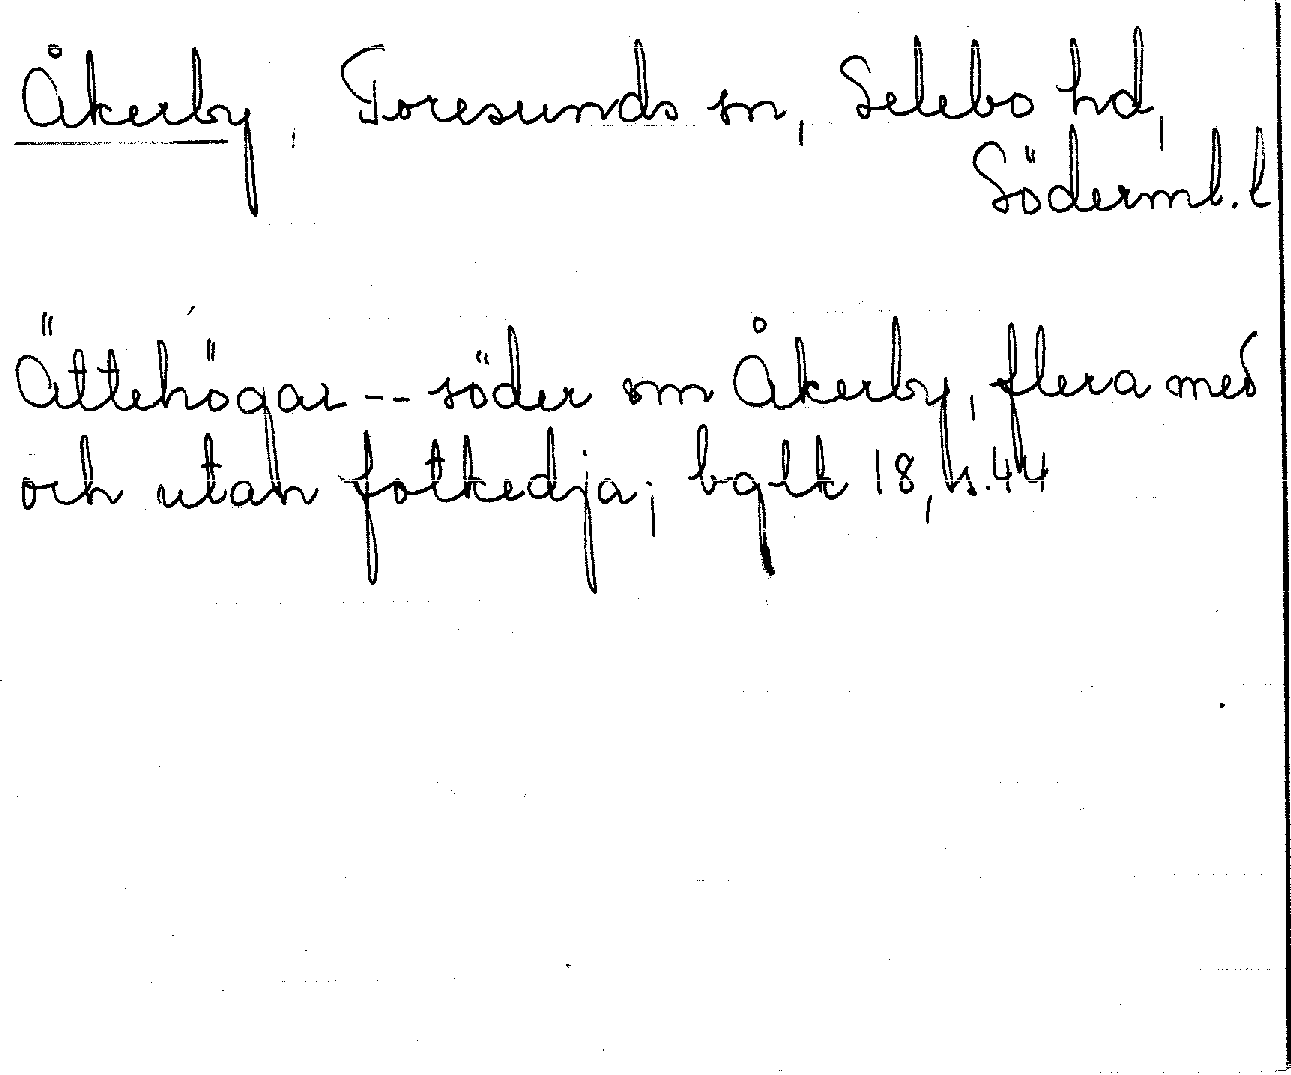 Åkerby, Toresunds sn, Selebo hd,
Söderml. l
Ättehögar -- söder om Åkerby, flera med
och utan fotkedja; bglk 18, s. 44